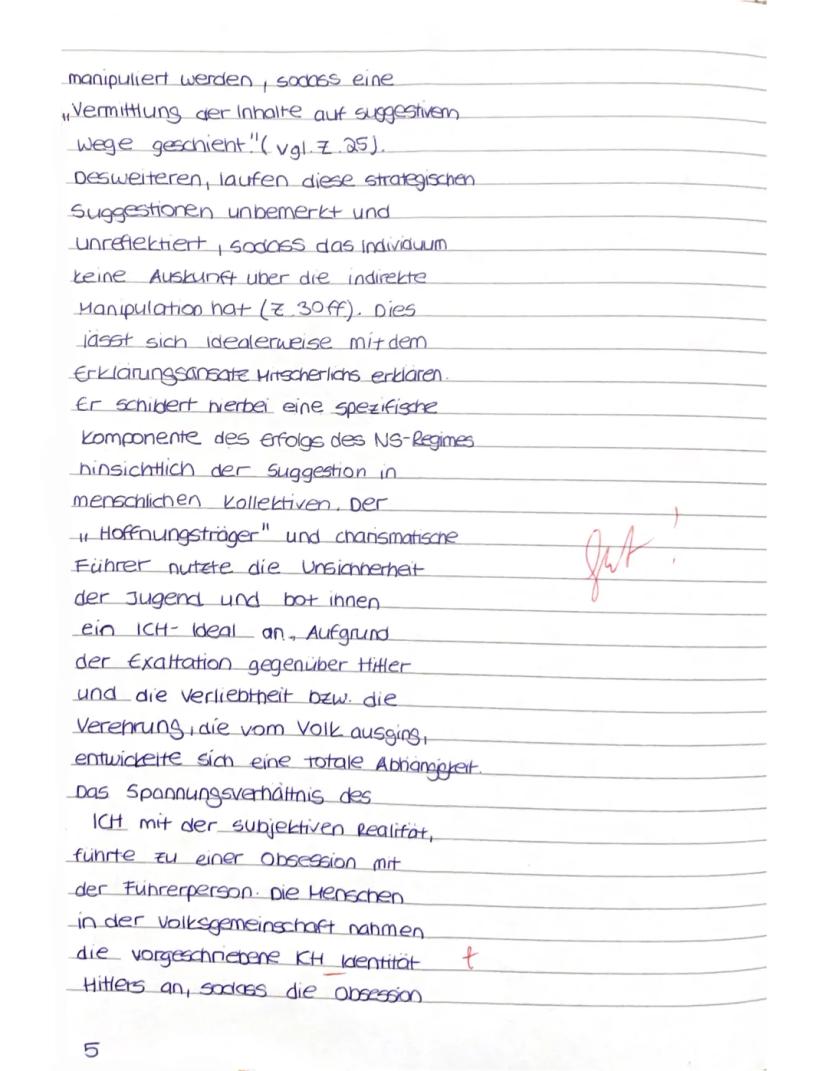 manipuliert werden, sodass eine
„Vermittlung der Inhalte auf suggestivem
Wege geschieht"(vgl. Z. 25).
Desweiteren, laufen diese strategischen
Suggestionen unbemerkt und
unreflektiert, sodass das Individuum
keine Auskunft über die indirekte
Manipulation hat (Z. 30ff). Dies
lässt sich idealerweise mit dem
Erklärungsansatz Mitscherlichs erklären.
Er schildert hierbei eine spezifische
Komponente des Erfolgs des NS-Regimes
hinsichtlich der Suggestion in
menschlichen Kollektiven. Der
„Hoffnungsträger" und charismatische
Führer nutzte die Unsicherheit
der Jugend und bot ihnen
gut!
ein ICH-Ideal an. Aufgrund
der Exaltation gegenüber Hitler
und die Verliebtheit bzw. die
Verehrung, die vom Volk ausging,
entwickelte sich eine totale Abhängigkeit.
Das Spannungsverhältnis des
ICH mit der subjektiven Realität,
führte zu einer Obsession mit
der Führerperson. Die Menschen
in der Volksgemeinschaft nahmen
die vorgeschriebene ICH Identität
Hitlers an, sodass die Obsession
5